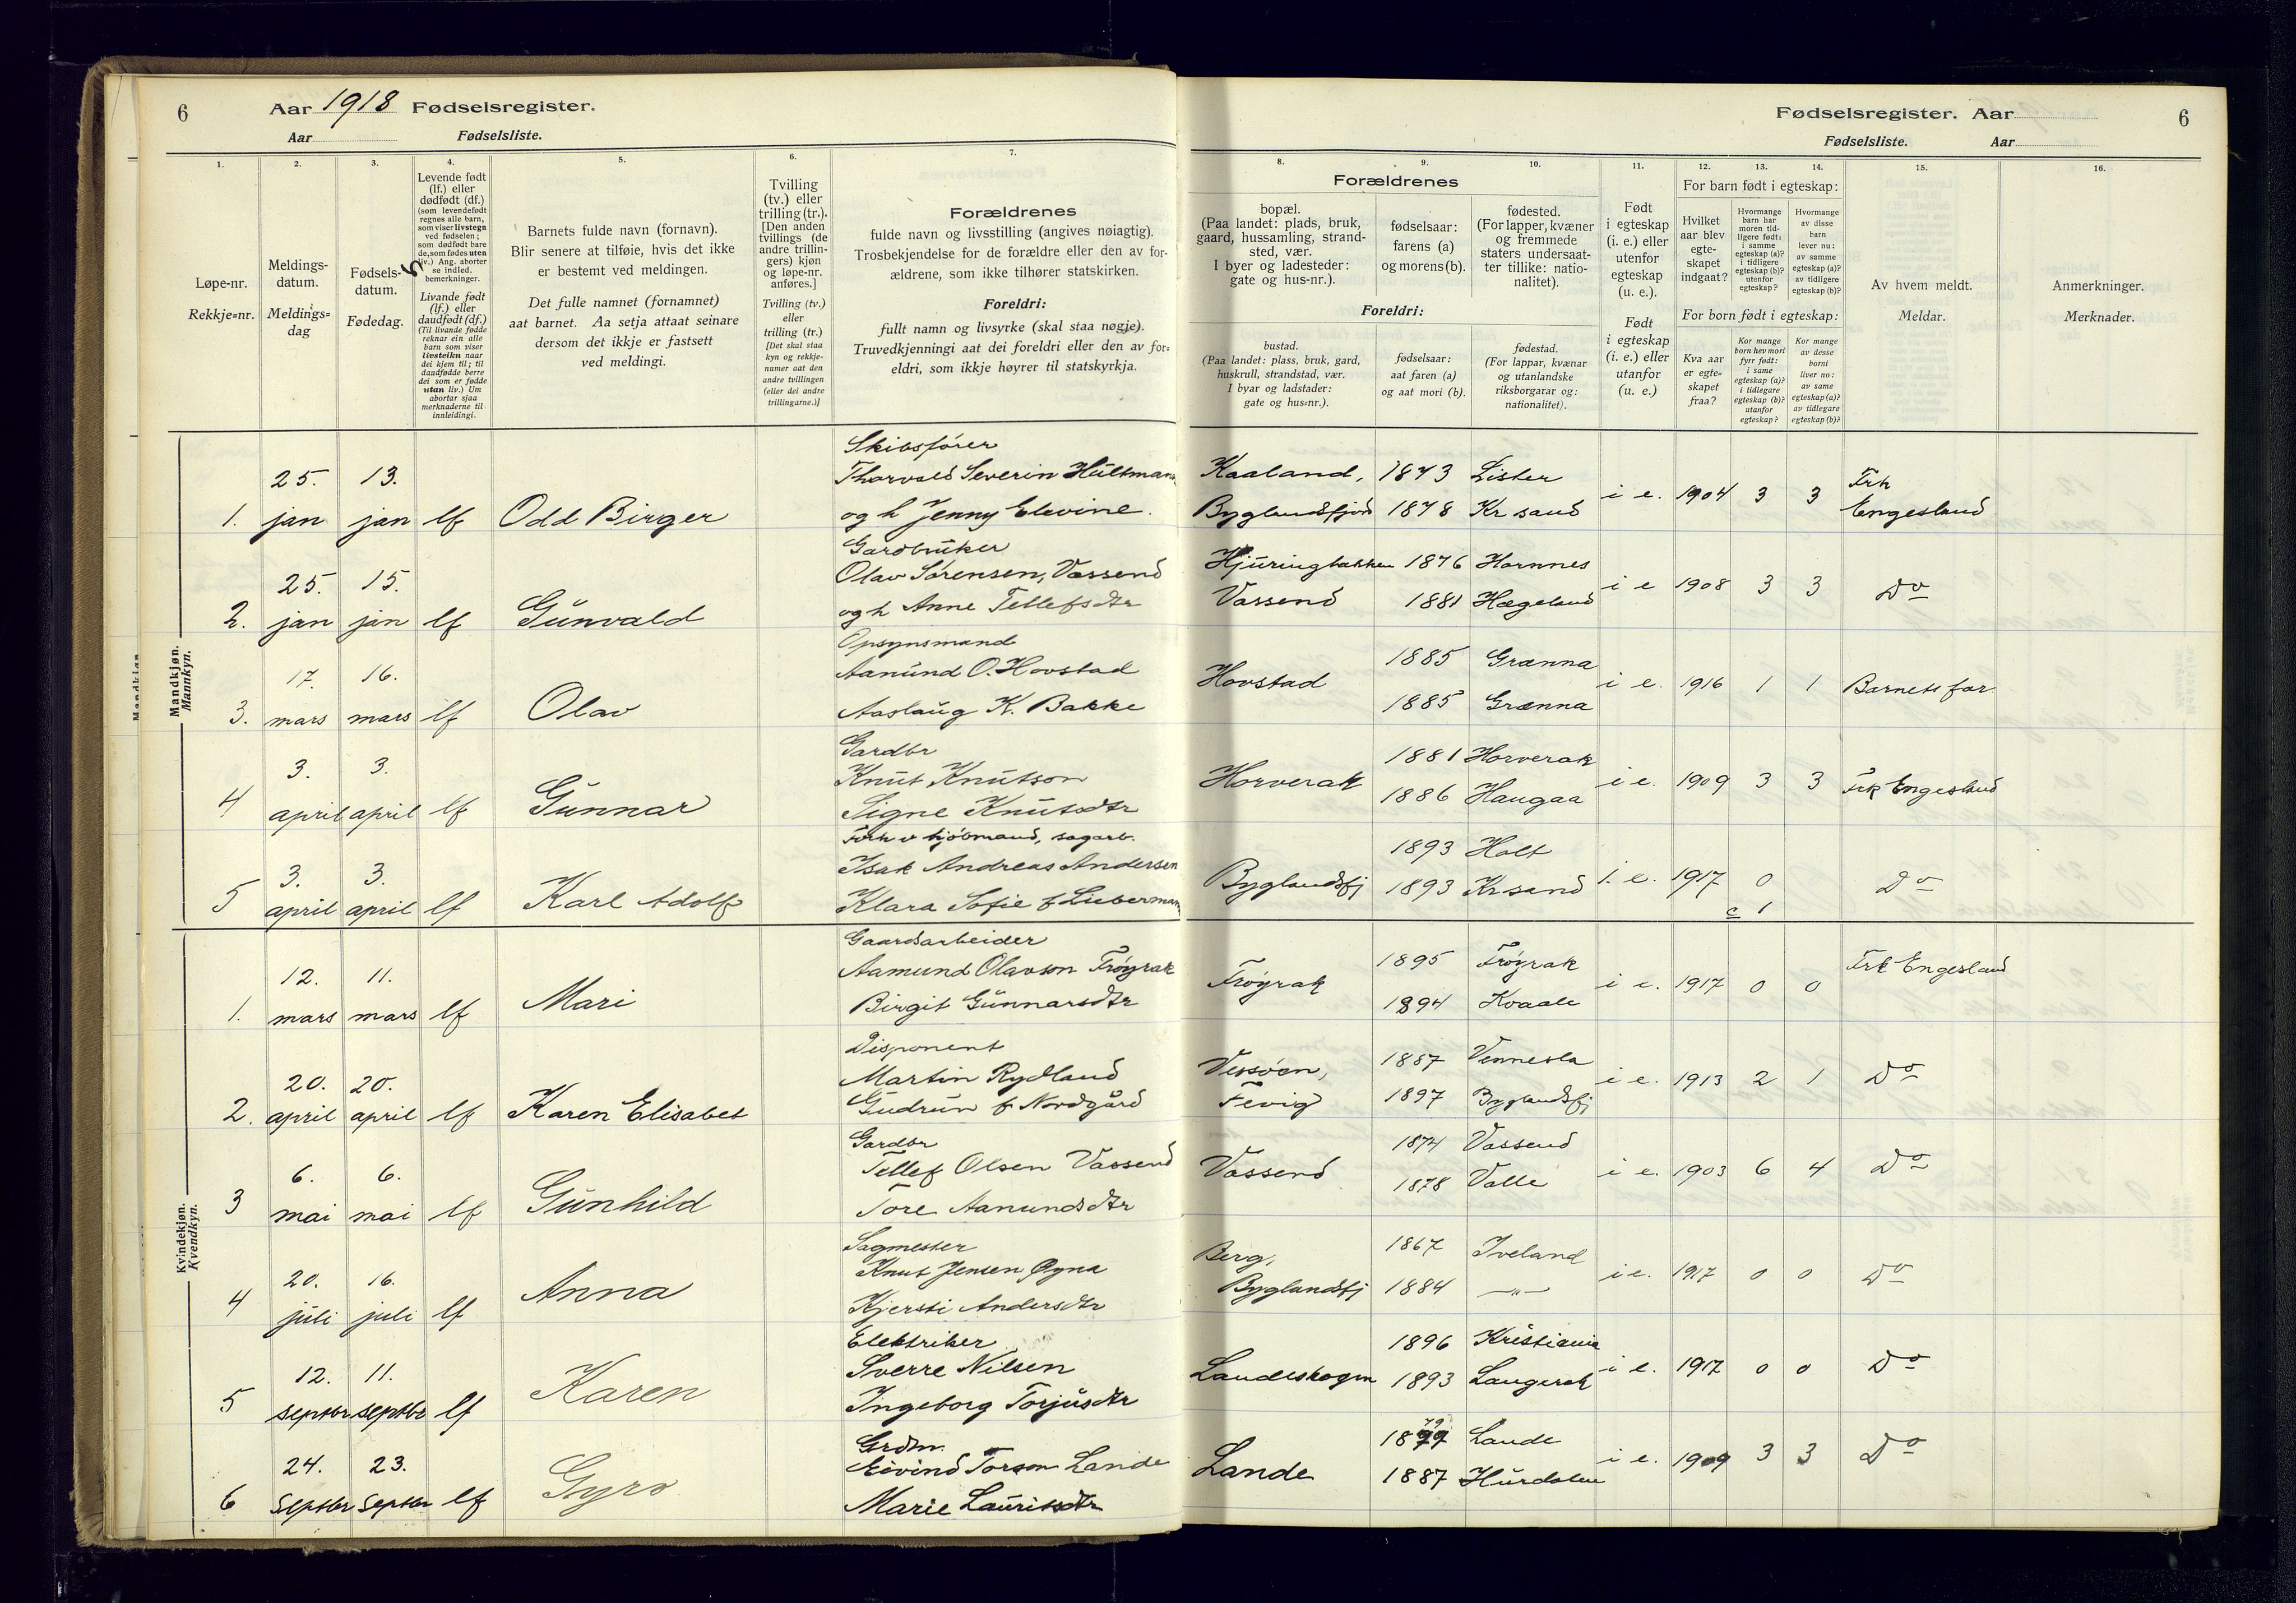 6 Aar 1918 Fødselsregister.
Aar Fødselsliste.
Fødselsregister. Aar 6
Fødselsliste. Aar
1. 2. 3. 4. 5. 6. 7. 8. 9. 10. 11. 12. 13. 14. 15. 16.
Løpe-nr.
Rekkje=nr.
Meldings-
datum.
Meldings=
dag
Fødsels-
datum.
Fødedag.
5
Levende født
(lf.) eller
dødfødt (df.)
(som levendefødt
regnes alle barn,
som viser livstegn
ved fødselen;
som dødfødt bare
de, som fødes uten
liv.) Ang. aborter
se indled.
bemerkninger.
Livande født
(lf.) eller
daudfødt (df.)
(Til livande fødde
reknar ein alle
barn som viser
livsteikn naar
dei kjem til; til
daudfødde berre
dei som er fødde
utan liv.) Um
abortar sjaa
merknaderne til
innleidingi.
Barnets fulde navn (fornavn).
Blir senere at tilføie, hvis det ikke
er bestemt ved meldingen.
Det fulle namnet (fornamnet)
aat barnet. Aa setja attaat seinare
dersom det ikkje er fastsett
ved meldingi.
Tvilling
(tv.) eller
trilling (tr.).
[Den anden
tvillings (de
andre trillin-
gers) kjøn
og løpe-nr.
anføres.]
Tvilling (tv.)
eller
trilling (tr.)
[Det skal staa
kyn og rekkje-
numer aat den
andre tvillingen
(eller dei andre
trillingarne.)]
Forældrenes
fulde navn og livsstilling (angives nøiagtig).
Trosbekjendelse for de forældre eller den av for-
ældrene, som ikke tilhører statskirken.
Foreldri:
fullt namn og livsyrke (skal staa nøgje).
Truvedkjenningi aat dei foreldri eller den av for=
eldri, som ikkje høyrer til statskyrkja.
Forældrenes
bopæl.
(Paa landet: plads, bruk,
gaard, hussamling, strand-
sted, vær.
I byer og ladesteder:
gate og hus-nr.).
fødselsaar:
farens (a)
og morens (b).
fødested.
(For lapper, kvæner
og fremmede
staters undersaat-
ter tillike: natio-
nalitet).
Foreldri:
bustad.
(Paa landet: plass, bruk, gard,
huskrull, strandstad, vær.
I byar og ladstader:
gate og hus=nr.).
fødselsaar:
aat faren (a)
og aat mori (b).
fødestad.
(For lappar, kvænar
og utanlandske
riksborgarar og:
nationalitet).
Født
i egteskap
(i. e.) eller
utenfor
egteskap
(u. e.).
Født
i egteskap
(i. e.) eller
utanfor
(u. e.)
For barn født i egteskap:
Hvilket
aar blev
egte-
skapet
indgaat?
Hvormange
barn har
moren tid-
ligere født:
i samme
egteskap (a)?
i tidligere
egteskap (b)?
utenfor
egteskap?
Hvormange
av disse
barn
lever nu:
av samme
egteskap (a)?
av tidligere
egteskap (b)?
For born født i egteskap:
Kva aar
er egte=
skapet
fraa?
Kor mange
born hev mori
fyrr født:
i same
egteskap (a)?
i tidlegare
egteskap (b)?
utanfor
egteskap?
Kor mange
av desse
borni
liver no:
av same
egteskap (a)?
av tidlegare
egteskap (b)?
Av hvem meldt.
Meldar.
Anmerkninger.
Merknader.
Mandkjøn.
Mannkyn.
Skibsfører
25. 13. Thorvald Severin Hultmann Kaaland, 1873 Lister Frk
1. jan jan lf Odd Birger og h Jenny Elevine. Byglandsfjord 1878 Kr sand i e. 1904 3 3 Engesland
Gardbruker
25. 15. Olav Sørensen, Vassend Hjuringbakken 1876 Hornnes
2. jan jan lf Gunvald og h Anne Tellefsdtr Vassend 1881 Hægeland i e 1908 3 3 Do
Opsynsmand
17. 16. Aanund O. Hovstad Hovstad 1885 Grænna
3. mars mars lf Olav Aaslaug K. Bakke 1885 Grænna i e. 1916 1 1 Barnets far.
Gardbr
3. 3. Knut Knutson Horverak 1881 Horverak
4 april april lf Gunnar Signe Knutsdtr 1886 Haugaa i e. 1909 3 3 Frk Engesland
sagarb.
3. 3. Isak Andreas Andersen Byglandsfj 1893 Holt
5 april april lf Karl Adolf Klara Sofie f Liebermann 1893 Kr sand i. e. 1917 0 Do
c 1
Kvindekjøn.
Kvendkyn.
Gaardsarbeider
12. 11. Aamund Olavson Frøyrak Frøyrak 1895 Frøyrak Frk Engesland
1. mars mars lf Mari Birgit Gunnarsdtr 1894 Kvaale i e. 1917 0 0
Disponent
20. 20. Martin Rydland Vessøen, 1887 Vennesla
2. april april lf Karen Elisabet Gudrun f Nordgård Fevig 1897 Byglandsfj i e. 1913 2 1 Do
Gardbr
6. 6. Tellef Olsen Vassend Vassend 1874 Vassend
3 mai mai lf Gunhild Tore Aanundsdtr 1878 Valle i e. 1903 6 4 Do
Sagmester
20. 16. Knut Jensen Øyna Berg, 1867 Iveland
4 juli juli lf Anna Kjersti Andersdtr Byglandsfj 1884 —"— i e. 1917 0 0 Do
Elektriker
12. 11. Sverre Nilsen Landeskogen 1896 Kristiania
5 septbr septbr lf Karen Ingeborg Torjusdtr 1893 Langerak i e. 1917 0 0 Do
Grdm.
24. 23. Eivind Torson Lande Lande 1879 Lande
6 Septbr Septbr lf Gyro Marie Lauritsdtr 1887 Hurdalen i e. 1909 3 3 Do